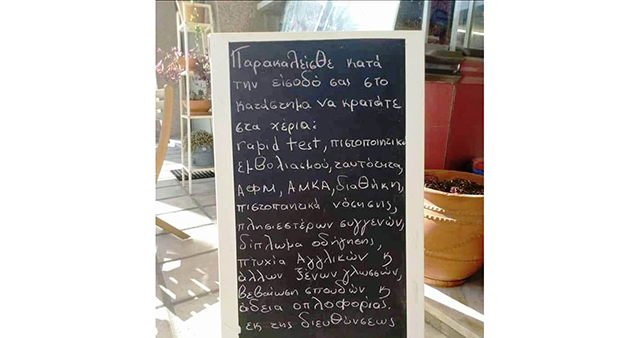 Παρακαλείσθε κατά
την είσοδό σας στο
κατάστημα να κρατάτε
στα χέρια:
rapid test, πιστοποιητικό
εμβολιασμού, ταυτότητα,
ΑΦΜ, ΑΜΚΑ, διαθήκη,
πιστοποιητικά νόσησης,
πλησιεστέρων συγγενών,
δίπλωμα οδήγησης,
πτυχία Αγγλικών ϗ
άλλων ξένων γλωσσών,
βεβαίωση σπουδών ϗ
άδεια οπλοφορίας.
εκ της διευθύνσεως